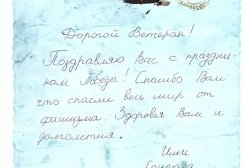 Дорогой Ветеран!
Поздравляю Вас с праздни-
ком Победы! Спасибо Вам
что спасли весь мир от
фашизма. Здоровья Вам и
долголетия.